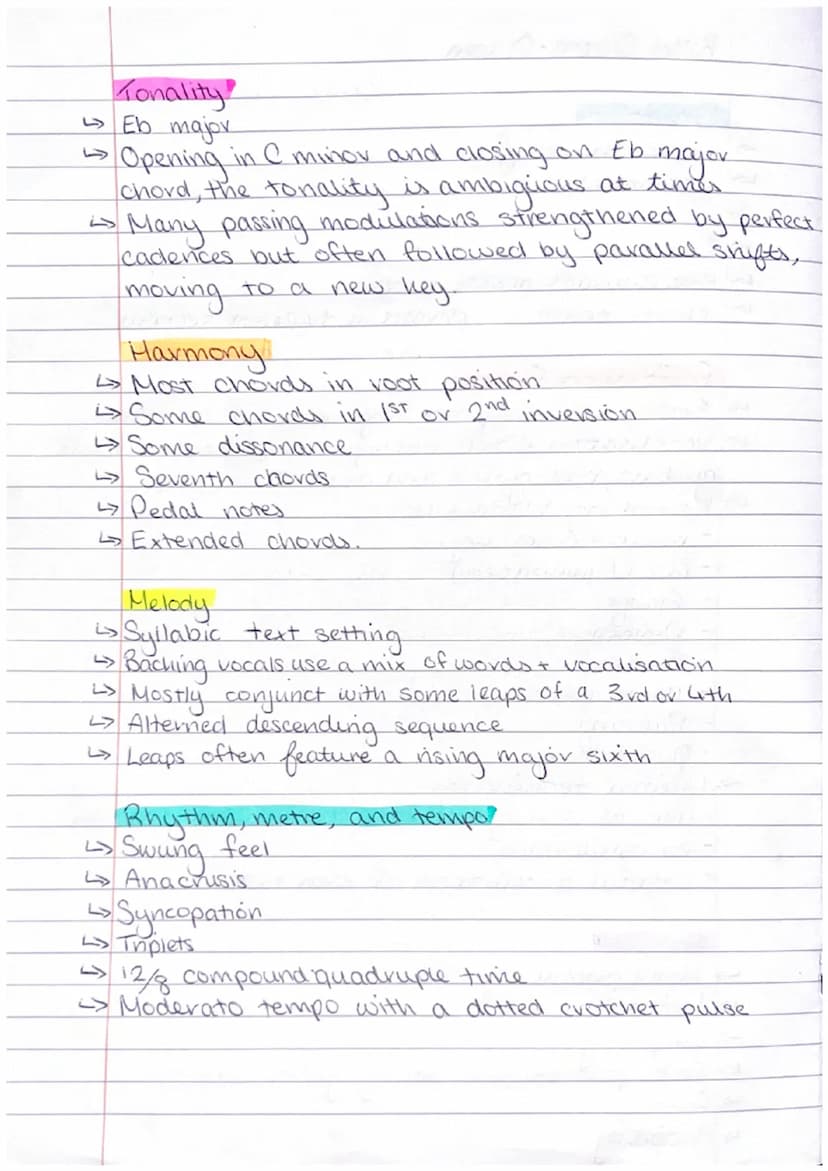 Tonality
↳ Eb major
↳ Opening in C minor and closing on Eb major
chord, the tonality is ambiguous at times
↳ Many passing modulations strengthened by perfect
cadences but often followed by parallel shifts,
moving to a new key.
Harmony
↳ Most chords in root position
↳ Some chords in 1st or 2nd inversion
↳ Some dissonance
↳ Seventh chords
↳ Pedal notes
↳ Extended chords.
Melody
↳ Syllabic text setting
↳ Backing vocals use a mix of words + vocalisation
↳ Mostly conjunct with some leaps of a 3rd or 4th
↳ Alterned descending sequence
↳ Leaps often feature a rising major sixth
Rhythm, metre, and tempo
↳ Swung feel
↳ Anacrusis
↳ Syncopation
↳ Triplets
↳ 12/8 compound quadruple time
↳ Moderato tempo with a dotted crotchet pulse